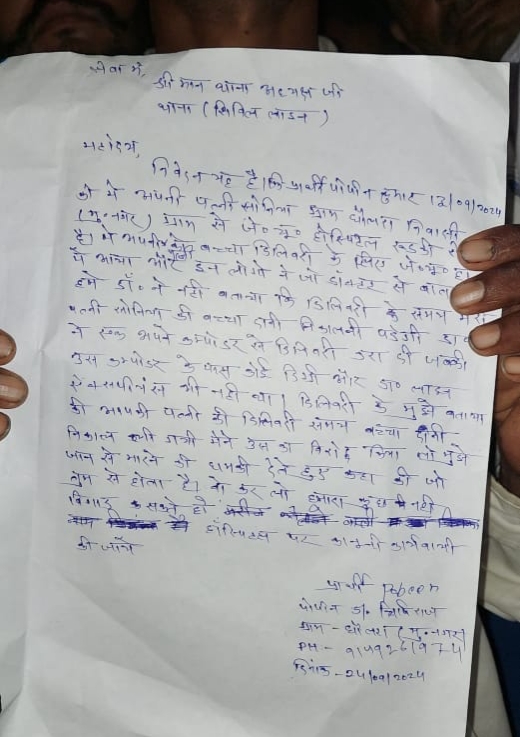 सेवा में,
श्री मान थाना अध्यक्ष जी
थाना (सिविल लाइन)
महोदय,
निवेदन यह है कि प्रार्थी पोपीन कुमार 13/09/2024
को मे अपनी पत्नी सोनिया ग्राम धौलरा निवासी
(मु० नगर) ग्राम से जे० यू० होस्पिटल रूडकी में
है। मे अपनी बच्चा डिलिवरी के लिए जे० यू० हो
में आया और इन लोगो ने जो डॉक्टर से बात
हमे डॉ० ने नही बताया कि डिलिवरी के समय मेरी
पत्नी सोनिया की बच्चा दानी निकालनी पडेगी डा०
ने एक अपने कम्पोडर से डिलिवरी करा दी जबकी
उस कम्पोडर के पास कोई डिग्री और ना लाइन
ऐक्सपीरियंस भी नही था। डिलिवरी के मुझे बताया
की आपकी पत्नी की डिलिवरी समय बच्चा दानी
निकाल ली गयी मैंने उस का विरोध किया तो मुझे
जान से मारने की धमकी देते हुए कहा की जो
तुम से होता है। वो कर लो हमारा कुछ नही
बिगाड सकते हो
हॉस्पिटल पर कानूनी कार्यवाही
की जाये
प्रार्थी Popeen
पोपीन S/o
ग्राम - धौलरा (मु० नगर)
दिनांक - 24/09/2024